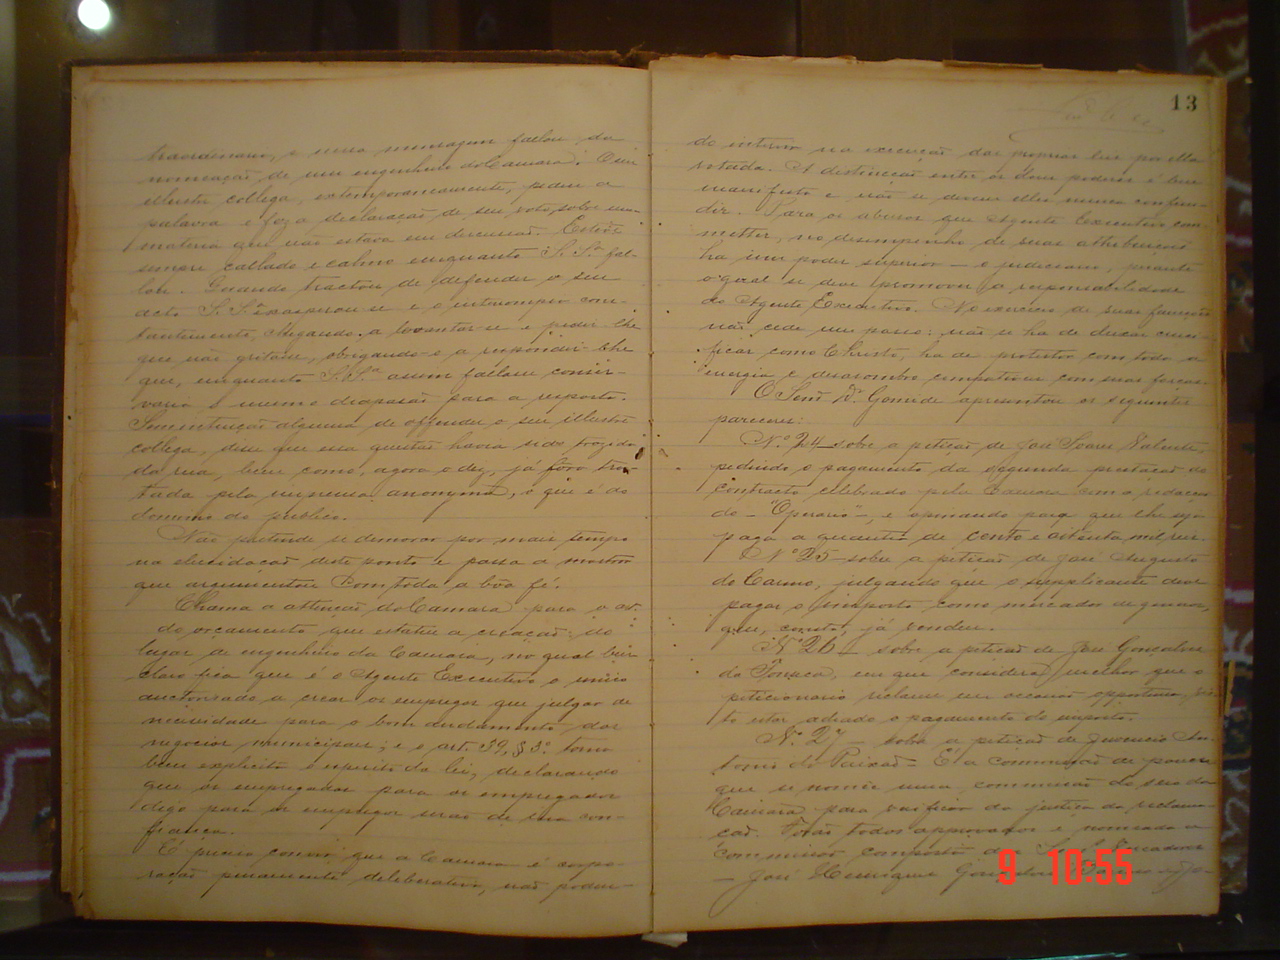 traordinario, e nessa mensagem fallou da
nomeação de um engenheiro da Camara. O seu
illustre collega, extemporaneamente, pediu a
palavra e fez a declaração de seu voto sobre uma
materia que não estava em discussão. Esteve
sempre callado e calmo enquanto S. S.ª fal-
lou. Quando tractou de defender o seu
acto S. S.ª exasperou-se e o interrompeu cons-
tantemente, chegando a levantar-se e pedir-lhe
que não gritasse, obrigando-o a responder-lhe
que, enquanto S. S.ª assim fallasse conser-
varia o mesmo diapasão para a resposta.
Sem intenção alguma de offender o seu illustre
collega, disse que essa questão havia sido trazida
da rua, bem como, agora o diz, já fôra tra-
tada pela imprensa anonyma, o que é do
dominio do publico.
Não pretende se demorar por mais tempo
na elucidação deste ponto e passa a mostrar
que argumentou com toda a bôa fé.
Chama a attenção da Camara para o art.
do orçamento que estatue a creação do
lugar de engenheiro da Camara, no qual bem
claro fica que é o Agente Executivo o unico
auctorisado a crear os empregos que julgar de
necessidade para o bom andamento dos
negocios municipaes; e o art. 39, § 3º torna
bem explicito o espirito da lei, declarando
que os empregados para os empregados
digo para os empregos serão de sua con-
fiança.
É preciso convir que a Camara é corpo-
ração puramente deliberativa, não poden-
13
do intervir na execução das proprias leis por ella
votadas. A distincção entre os dous poderes é bem
manifesta e não se devem elles nunca confun-
dir. Para os abusos que Agente Executivo com-
metter, no desempenho de suas attribuições
ha um poder superior — o judiciario, perante
o qual se deve promover a responsabilidade
do Agente Executivo. No exercicio de suas funcções
não cede um passo: não se ha de deixar cruci-
ficar como Christo, ha de protestar com toda a
energia e desassombro compativeis com suas forças.
O Senr. Dr. Gomide apresentou os seguintes
pareceres:
N.º 24 — sobre a petição de José Soares Valente,
pedindo o pagamento da segunda prestação do
contracto celebrado pela Camara com a redacção
do — "Operario" —, e opinando para que lhe seja
paga a quantia de cento e oitenta mil reis.
N.º 25 — sobre a petição de José Augusto
do Carmo, julgando que o supplicante deve
pagar o imposto como mercador de generos,
que, consta, já vendeu.
N.º 26 — sobre a petição de José Gonçalves
da Fonseca, em que considera melhor que o
peticionario reclame em occasião opportuna, vis-
to estar adiado o pagamento do imposto.
N.º 27 — sobre a petição de Juvencio An-
tonio da Paixão — É a commissão de parecer
que se nomeie uma commissão do seio da
Camara para verificar da justiça da reclama-
ção. Foram todos approvados e nomeada a
commissão composta dos Senrs. Vereadores
— José Henrique
9 10:55